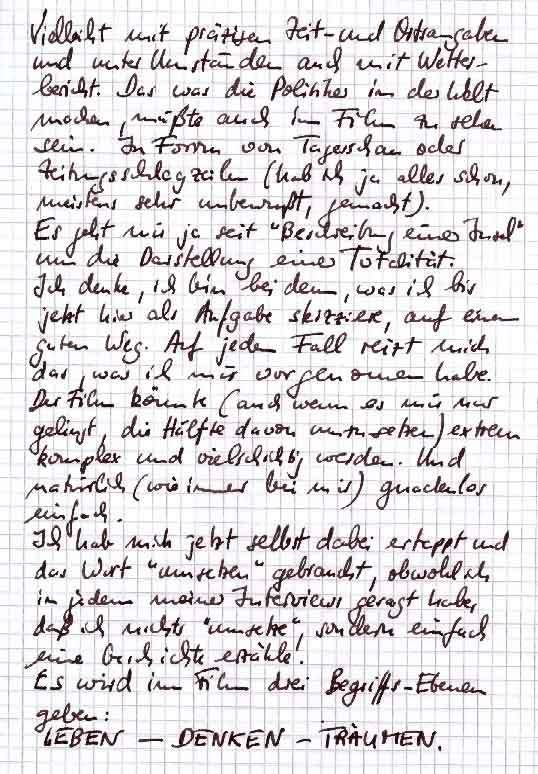 Vielleicht mit präzisen Zeit- und Ortsangaben
und unter Umständen auch mit Wetter-
bericht. Das was die Politiker in der Welt
machen, müßte auch im Film zu sehen
sein. In Form von Tagesschau oder
Zeitungsschlagzeilen (hab ich ja alles schon,
meistens sehr unbewußt, gemacht).
Es geht mir ja seit "Beschreibung einer Insel"
um die Darstellung einer Totalität.
Ich denke, ich bin bei dem, was ich bis
jetzt hier als Aufgabe skizziere, auf einem
guten Weg. Auf jeden Fall reizt mich
das, was ich mir vorgenommen habe.
Der Film könnte (auch wenn es mir nur
gelingt, die Hälfte davon umzusetzen) extrem
komplex und vielschichtig werden. Und
natürlich (wie immer bei mir) gnadenlos
einfach.
Ich hab mich jetzt selbst dabei ertappt und
das Wort "umsetzen" gebraucht, obwohl ich
in jedem meiner Interviews gesagt habe,
daß ich nichts "umsetze", sondern einfach
eine Geschichte erzähle!
Es wird im Film drei Begriffs-Ebenen
geben:
LEBEN — DENKEN — TRÄUMEN.